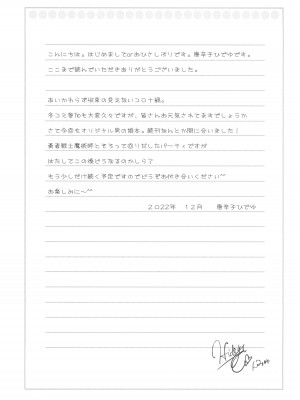 こんにちは。はじめましてorおひさしぶりです。唐辛子ひでゆです。
ここまで読んでいただきありがとうございました。
あいかわらず収束の見えないコロナ禍。
冬コミ参加も大変久々ですが、皆さんお元気されてますでしょうか
さて今回もオリジナル男の娘本。続刊なんとか間に合いました!
勇者戦士魔術師とそろって回りだしたパーティですが
はたしてこの後どうなるのかしら?
もう少しだけ続く予定ですのでどうぞお付き合いください~
お楽しみに~~
2022年 12月 唐辛子ひでゆ